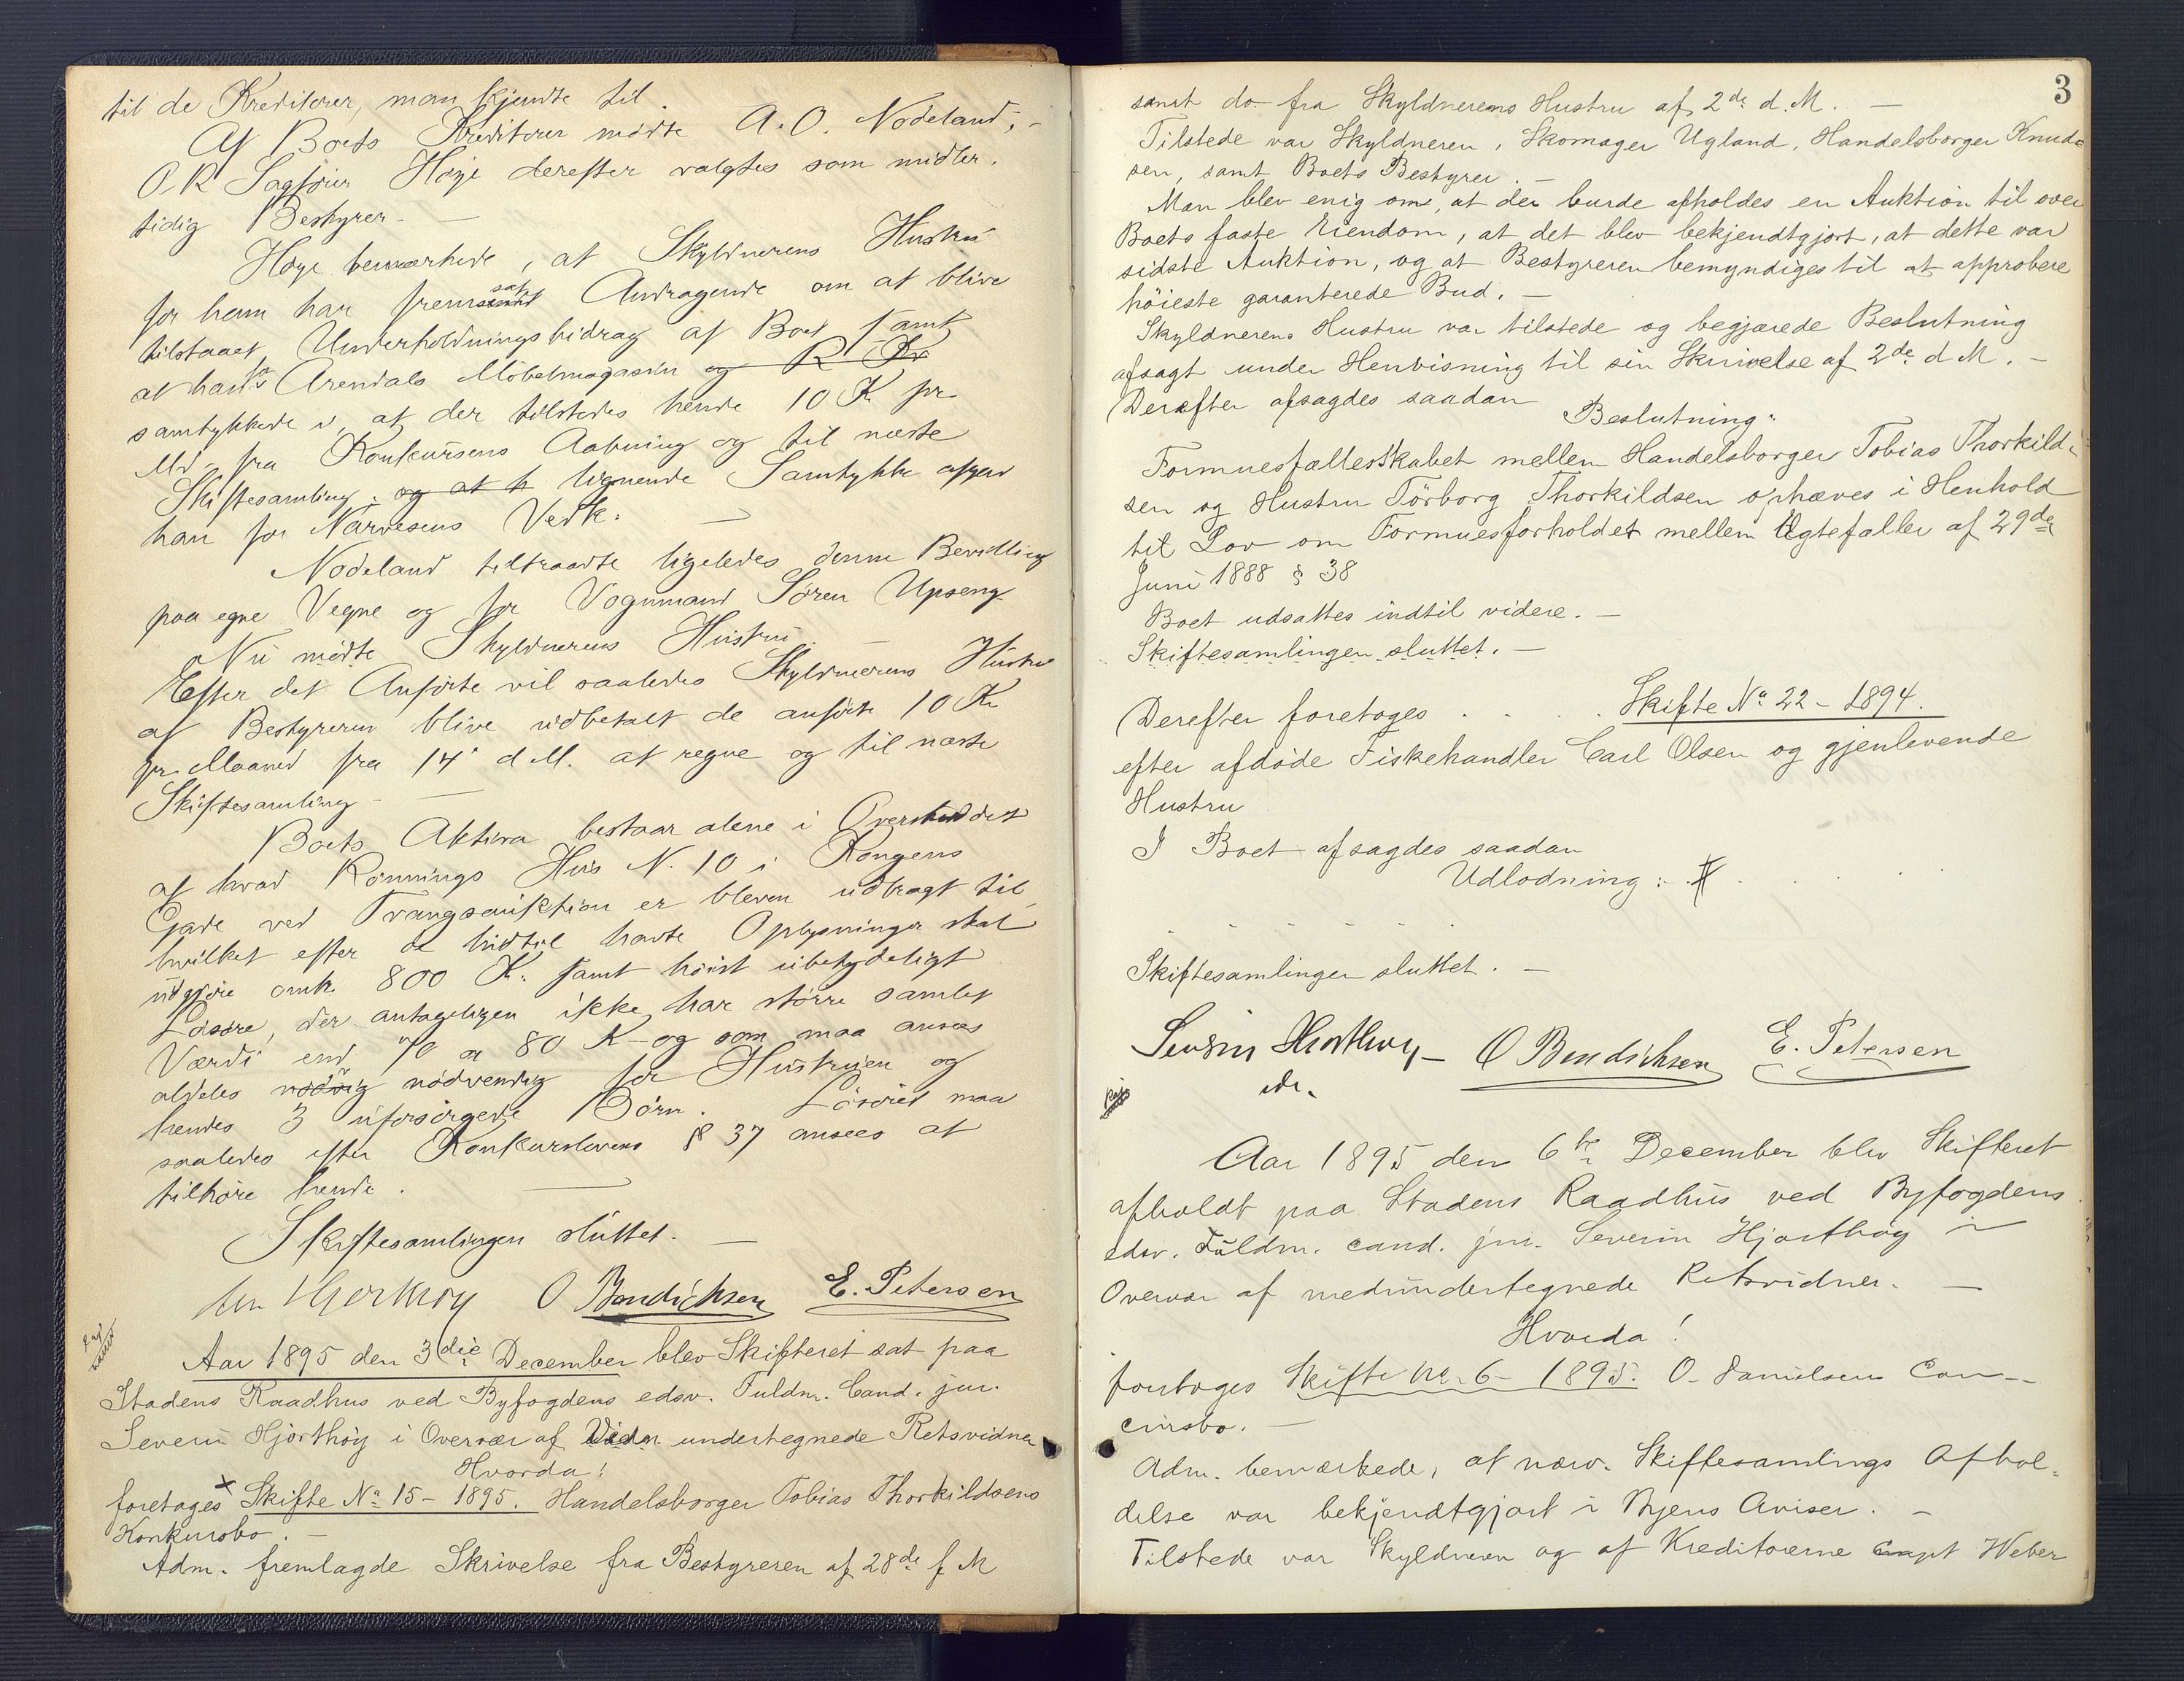 til de Kreditorer, man kjendte til.
Af Boets Kreditorer mødte A. O. Nodeland, -
O R Sagfører Høye derefter valgtes som midler.
tidig Bestyrer. —
Høye bemærkede, at Skyldnerens Hustru
for ham har fremsat Andragende om at blive
tilstaaet Underholdningsbidrag af Boet samt
at hans Arendals Möbelmagasin og R Kr
samtykkede i, at der tilstedes hende 10 K pr
Md. fra Konkursens Aabning og til næste
Skiftesamling. og at h lignende Samtykke afgav
han for Narvesens Vedk. —
Nodeland tiltraadte ligeledes denne Bevilling
paa egne Vegne og for Vognmand Sören Upseng.
Nu mødte Skyldnerens Hustru. —
Efter det Anförte vil saaledes Skyldnerens Hustru
af Bestyreren blive udbetalt de anförte 10 Kr
pr. Maaned fra 14' d. M. at regne og til næste
Skiftesamling. —
Boets Aktiva bestaar alene i Overskuddet
af hvad Rönnings Hus N. 10 i Kongens
Gade ved Tvangsauktion er bleven udbragt til,
hvilket efter de hidtil havte Oplysninger skal
udgjöre omtr. 800 K. samt höist ubetydeligt
Lösöre, der antageligen ikke har större samlet
Værdi end 70 a 80 K og som maa ansees
aldeles nödvendig for Hustruen og
hendes 3 uforsörgede Börn. Lösöret maa
saaledes efter Konkurslovens § 37 ansees at
tilhöre hende. —
Skiftesamlingen sluttet. —
Hjorthøy O Bendichsen E. Petersen
Aar 1895 den 3die December blev Skifteret sat paa
Stadens Raadhus ved Byfogdens edsv. Fuldm. Cand. jur.
Severin Hjorthöy i Overvær af undertegnede Retsvidner
Hvorda!
foretages Skifte No 15 - 1895. Handelsborger Tobias Thorkildsens
Konkursbo. —
Adm. fremlagde Skrivelse fra Bestyreren af 28de f M
3
samt do. fra Skyldnerens Hustru af 2de d. M. —
Tilstede var Skyldneren, Skomager Ugland, Handelsborger Knud-
sen, samt Boets Bestyrer. —
Man blev enig om, at der burde afholdes en Auktion til over
Boets faste Eiendom, at det blev bekjendtgjort, at dette var
sidste Auktion, og at Bestyreren bemyndiges til at approbere
höieste garanterede Bud. —
Skyldnerens Hustru var tilstede og begjærede Beslutning
afsagt under Henvisning til sin Skrivelse af 2de d M. —
Derefter afsagdes saadan
Beslutning:
Formuesfællesskabet mellem Handelsborger Tobias Thorkild-
sen og Hustru Törborg Thorkildsen ophæves i Henhold
til Lov om Formuesforholdet mellem Ægtefæller af 29de
Juni 1888 § 38
Boet udsattes indtil videre. —
Skiftesamlingen sluttet. —
Derefter foretoges . . . . Skifte No 22 - 1894.
efter afdøde Fiskehandler Carl Olsen og gjenlevende
Hustru
I Boet afsagdes saadan
Udlodning:
Skiftesamlingen sluttet. —
Severin Hjorthøy — O Bendichsen E. Petersen
edv.
Aar 1895 den 6te December blev Skifteret
afholdt paa Stadens Raadhus ved Byfogdens
edsv. Fuldm. cand. jur. Severin Hjorthöy i
Overvær af medundertegnede Retsvidner. —
Hvorda!
foretoges Skifte No. 6 - 1895. O. Danielsens Con-
cursbo. —
Adm. bemærkede, at nærv. Skiftesamlings Afhol-
delse var bekjendtgjort i Byens Aviser. —
Tilstede var Skyldneren og af Kreditorerne Weber